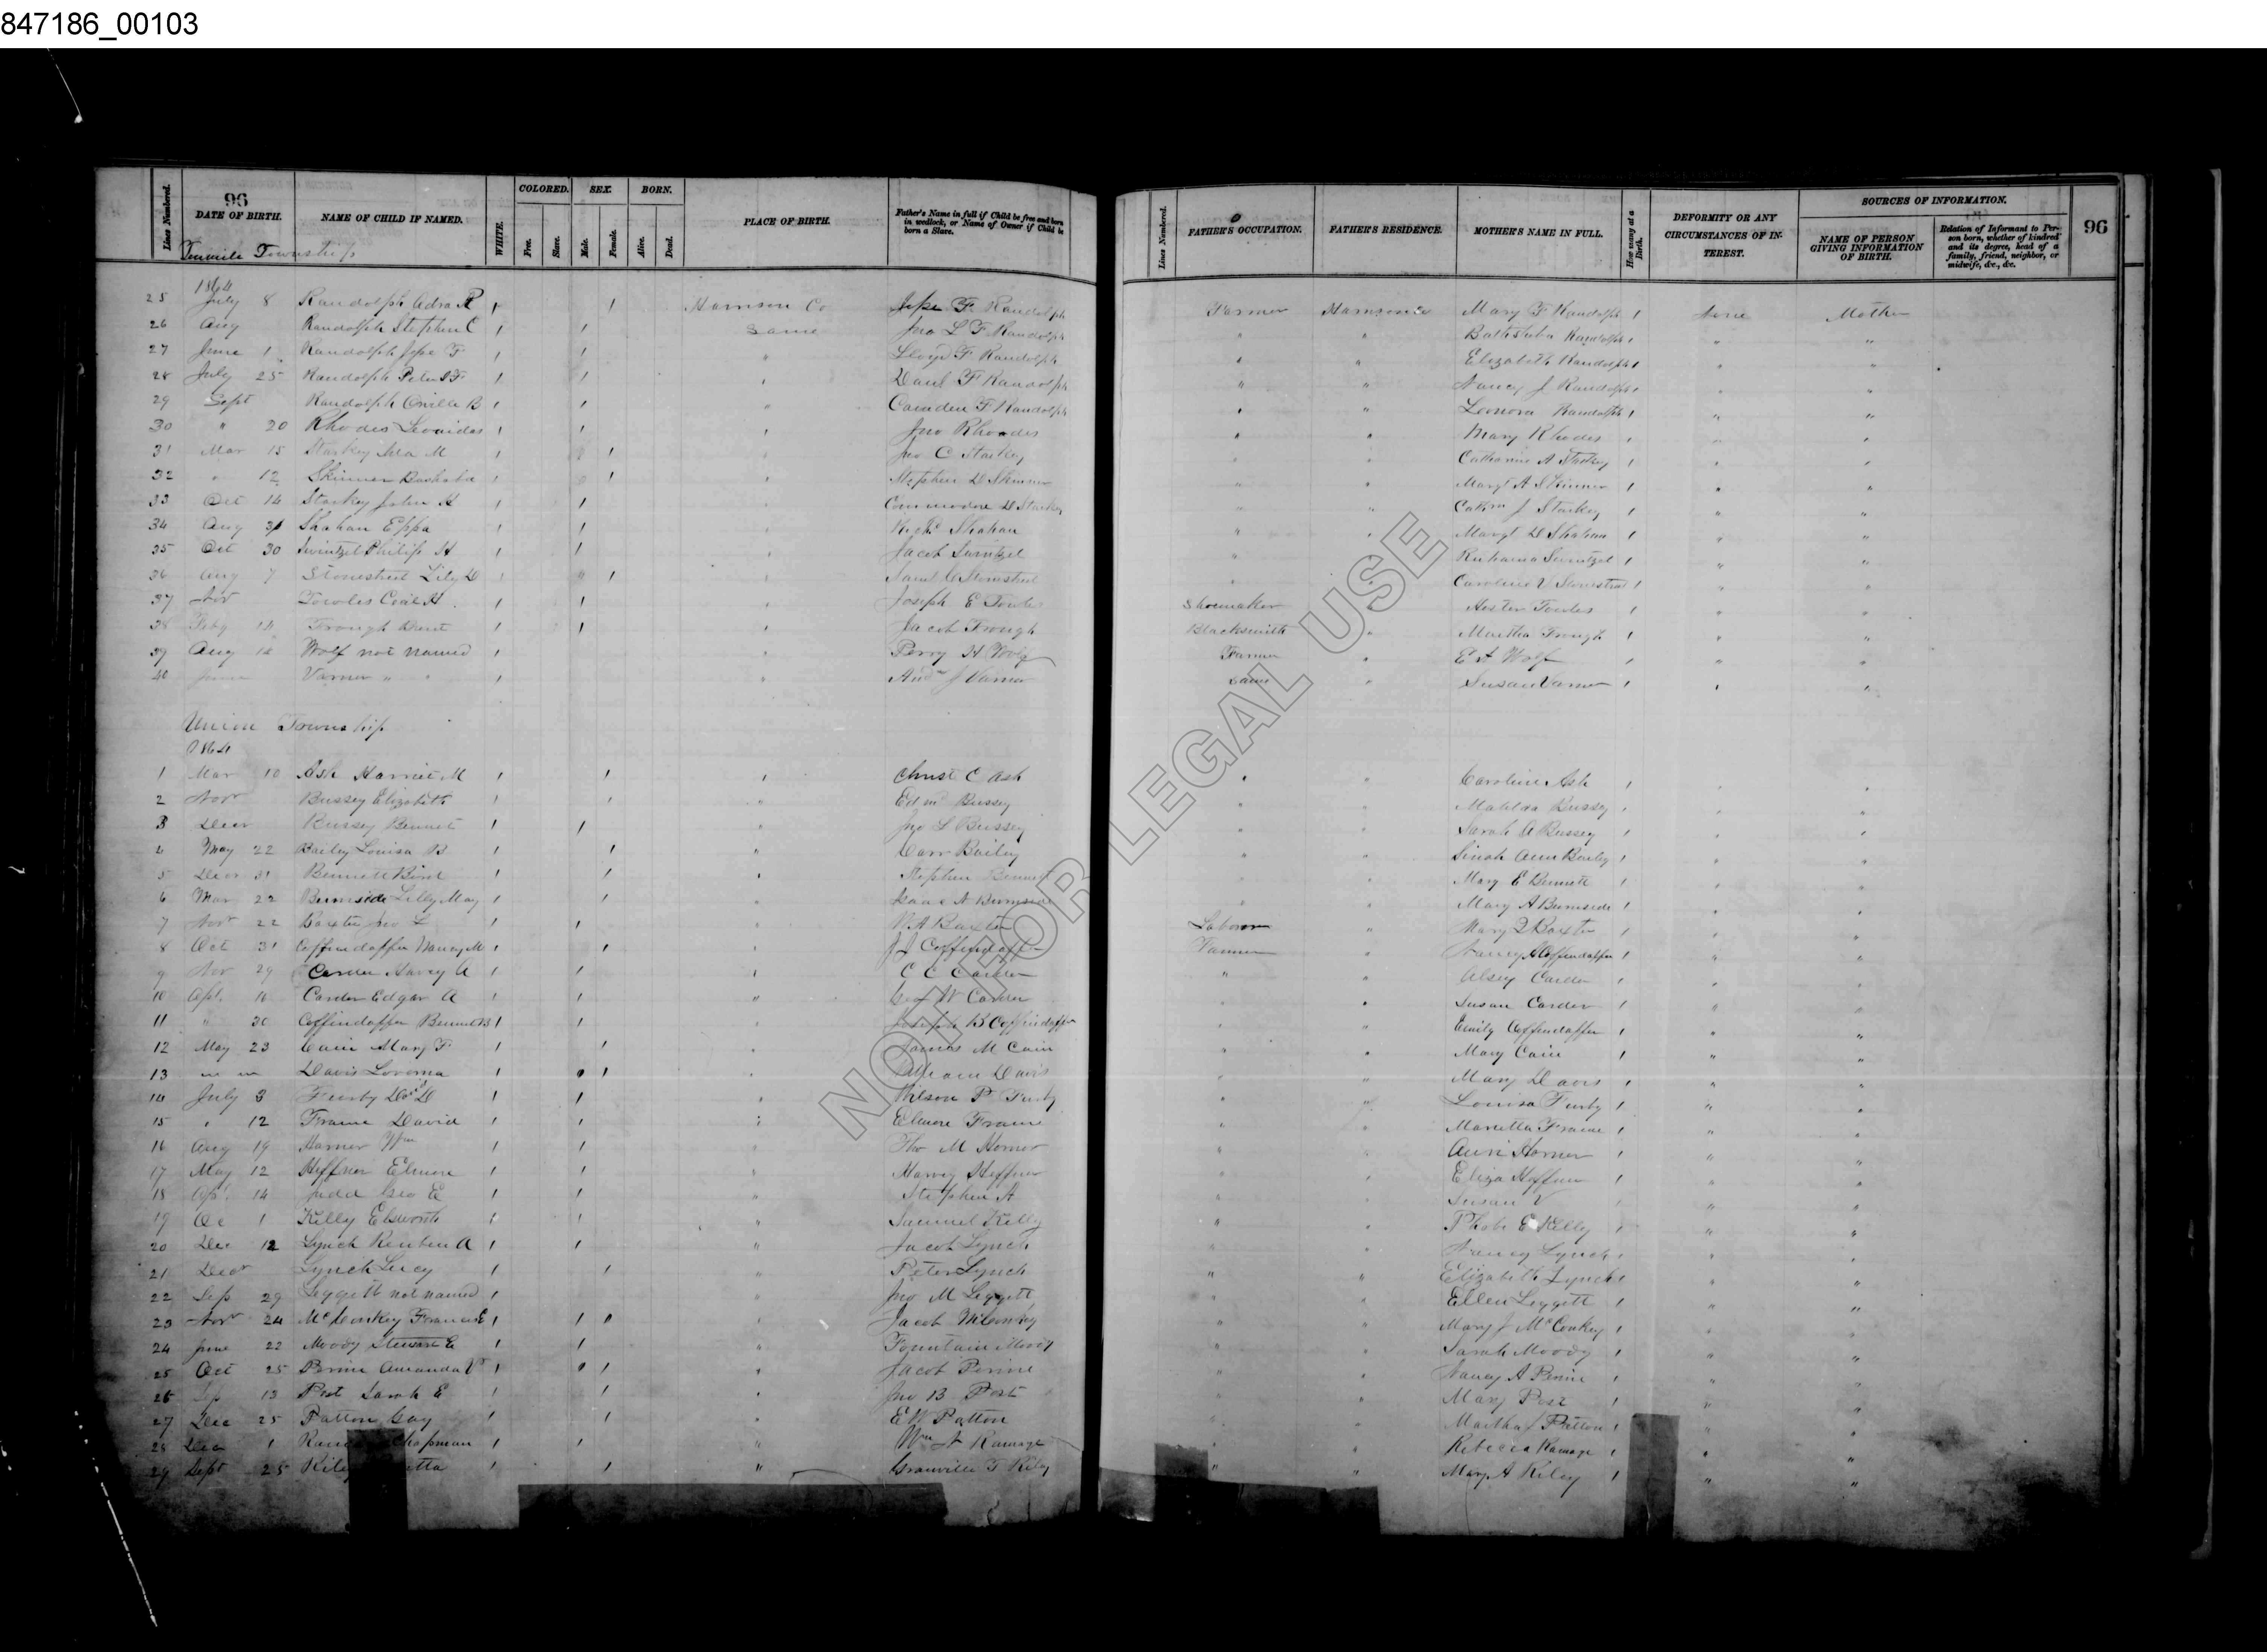 847186_00103
96
Lines Numbered. DATE OF BIRTH. NAME OF CHILD IF NAMED. WHITE. COLORED. Free. Slave. SEX. Male. Female. BORN. Alive. Dead. PLACE OF BIRTH. Father's Name in full if Child be free and born in wedlock, or Name of Owner if Child be born a Slave.
Lines Numbered. FATHER'S OCCUPATION. FATHER'S RESIDENCE. MOTHER'S NAME IN FULL. How many at a Birth. DEFORMITY OR ANY CIRCUMSTANCES OF INTEREST. SOURCES OF INFORMATION. NAME OF PERSON GIVING INFORMATION OF BIRTH. Relation of Informant to Person born, whether of kindred and its degree, head of a family, friend, neighbor, or midwife, &c., &c. 96
Tenmile Township
1864
25 July 8 Randolph Adra R 1 1 Harrison Co Jesse F Randolph Farmer Harrison Co Mary F Randolph 1 None Mother
26 Aug Randolph Stephen C 1 1 Same Jno L F Randolph " " Bathsheba Randolph 1 " "
27 June 1 Randolph Jesse F 1 1 " Lloyd F Randolph " " Elizabeth Randolph 1 " "
28 July 25 Randolph Peter F 1 1 " Danl F Randolph " " Nancy J Randolph 1 " "
29 Sept Randolph Orville B 1 1 " Camden F Randolph " " Leonora Randolph 1 " "
30 " 20 Rhodes Leonidas 1 1 " Jno Rhoades " " Mary Rhodes 1 " "
31 Mar 15 Starkey M 1 1 " Jno C Starkey " " Catharine A Starkey 1 " "
32 " 12 Skinner 1 1 " Stephen D Skinner " " Margt A Skinner 1 " "
33 Oct 14 Starkey John H 1 1 " Commodore D Starkey " " J Starkey 1 " "
34 Aug 31 Shahan Eppa 1 1 " Richd Shahan " " Margt D Shahan 1 " "
35 Oct 30 Swintzel Philip H 1 1 " Jacob Swintzel " " Ruhama Swintzel 1 " "
36 Aug 7 Stonestreet Lily D 1 1 " Saml Stonestreet " " Caroline V Stonestreet 1 " "
37 Nov Towles Cecil H 1 1 " Joseph E Towles Shoemaker " Hester Towles 1 " "
38 Feby 14 Trough 1 1 " Jacob Trough Blacksmith " Martha Trough 1 " "
39 Aug 14 Wolf not named 1 " Perry H Wolf Farmer " E A Wolf 1 " "
40 June Varner " " 1 " And J Varner Same " Susan Varner 1 " "
Union Township
1864
1 Mar 10 Ash Harriet M 1 1 " Christ C Ash " " Caroline Ash 1 " "
2 Nov Bussey Elizabeth 1 1 " Edwd Bussey " " Matilda Bussey 1 " "
3 Decr Bussey Bennet 1 1 " Jno L Bussey " " Sarah A Bussey 1 " "
4 May 22 Bailey Louisa B 1 1 " Carr Bailey " " Sinah Ann Bailey 1 " "
5 Decr 31 Bennett 1 1 " Stephen Bennett " " Mary E Bennett 1 " "
6 Mar 22 Burnside Lilly May 1 1 " Isaac N Burnside " " Mary A Burnside 1 " "
7 Nov 22 Baxter Jno L 1 1 " Baxter Laborer " Mary Baxter 1 " "
8 Oct 31 Coffindaffer Nancy M 1 1 J J Coffindaffer Farmer " Nancy Coffindaffer 1 " "
9 Nov 29 Carder Harvy A 1 1 " C C Carder " " Alsey Carder 1 " "
10 Apl. 10 Carder Edgar A 1 1 " Geo W Carder " " Susan Carder 1 " "
11 " 30 Coffindaffer Bennet B 1 1 " Joseph B Coffindaffer " " Emily Coffindaffer 1 " "
12 May 23 Cain Mary F 1 1 " James M Cain " " Mary Cain 1 " "
13 " " Davis 1 1 " Davis " " Mary Davis 1 " "
14 July 3 Furby D 1 1 " Wilson P Furby " " Louisa Furby 1 " "
15 " 12 Frame David 1 1 " Elmore Frame " " Marietta Frame 1 " "
16 Aug 19 Horner Wm 1 1 " Tho M Horner " " Ann Horner 1 " "
17 May 12 Heffner Elmore 1 1 " Harvey Heffner " " Eliza Heffner 1 " "
18 Apl. 14 Judd Geo E 1 1 " Stephen A " " Susan V 1 " "
19 Oc 1 Kelly Elsworth 1 1 " Samuel Kelly " " Phebe E Kelly 1 " "
20 Dec 12 Lynch Reuben A 1 1 " Jacob Lynch " " Nancy Lynch 1 " "
21 Decr Lynch Lucy 1 1 " Peter Lynch " " Elizabeth Lynch 1 " "
22 Sep 29 Leggett not named 1 " Jno M Leggett " " Ellen Leggett 1 " "
23 Nov 24 McConkey Francis E 1 1 " Jacob McConkey " " Mary J McConkey 1 " "
24 June 22 Moody Stewart E 1 1 " Fountain Moody " " Sarah Moody 1 " "
25 Oct 25 Perine Amanda V 1 1 " Jacob Perine " " Nancy A Perine 1 " "
26 Sep 13 Post Sarah E 1 1 " Jno B Post " " Mary Post 1 " "
27 Dec 25 Patton Gay 1 1 " E W Patton " " Martha J Patton 1 " "
28 Dec 1 Chapman 1 1 " Wm N Ramage " " Rebecca Ramage 1 " "
29 Sept 25 Riley 1 1 " Granville T Riley " " Mary A Riley 1 " "
NOT FOR LEGAL USE